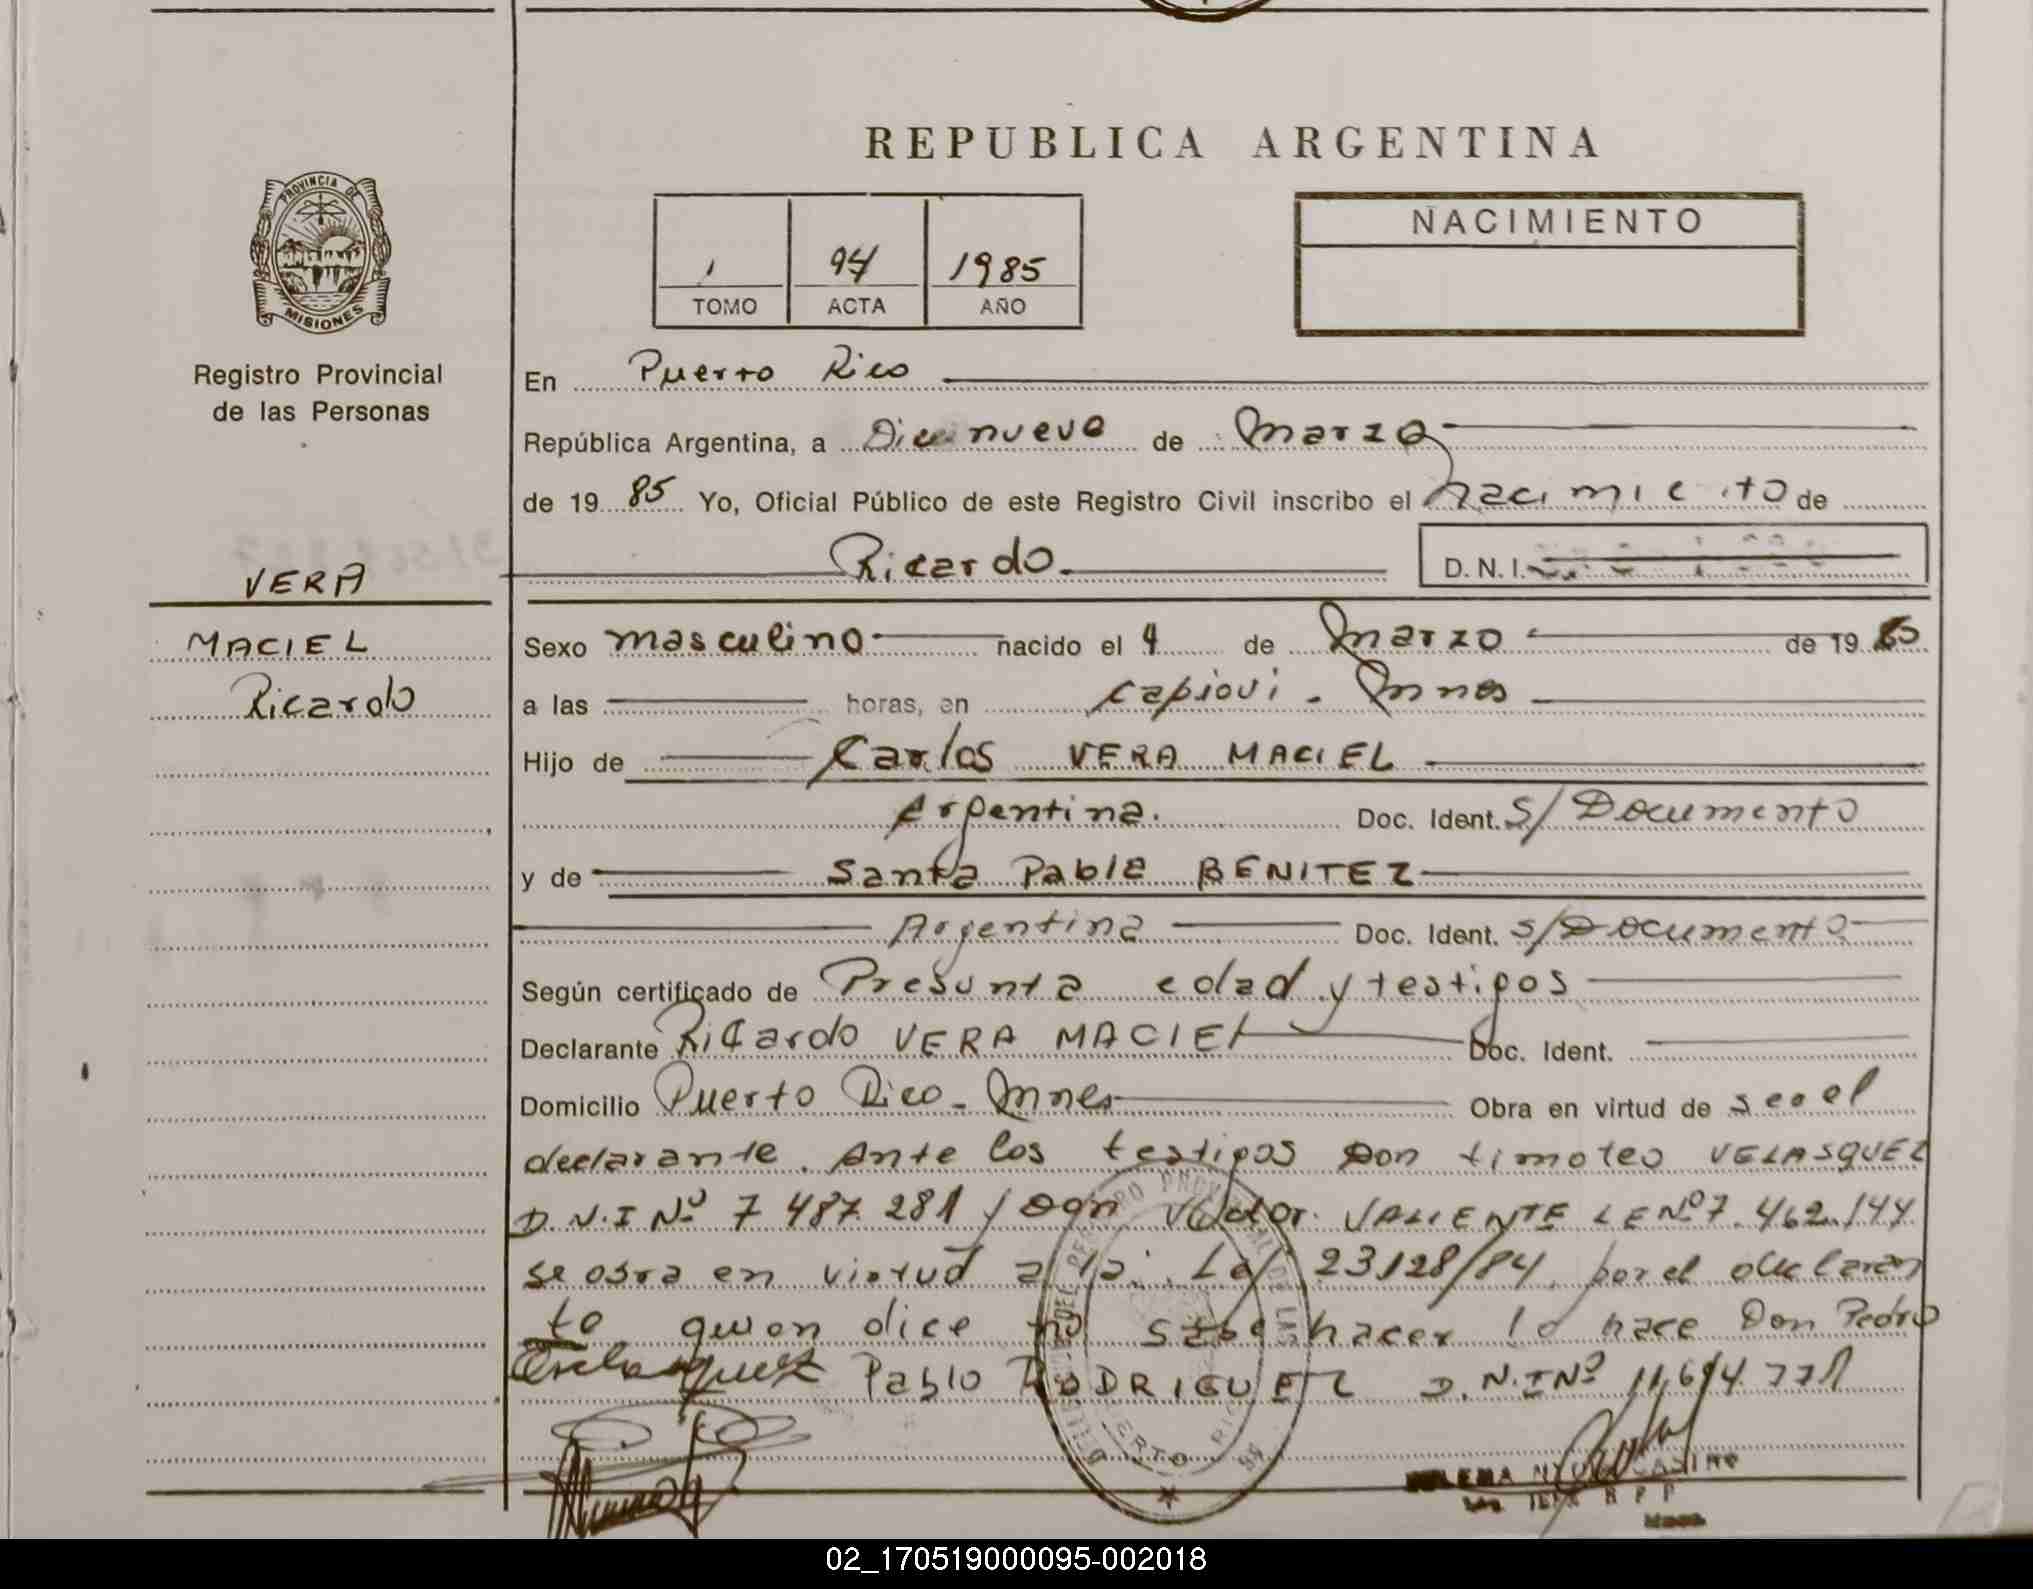 REPUBLICA ARGENTINA
PROVINCIA DE
MISIONES
Registro Provincial
de las Personas
1 94 1985
TOMO ACTA AÑO
NACIMIENTO
En Puerto Rico
República Argentina, a Diecinueve de Marzo
de 19 85 Yo, Oficial Público de este Registro Civil inscribo el nacimieito de
Ricardo D. N. I.
VERA
MACIEL
Ricardo
Sexo masculino nacido el 4 de Marzo de 19
a las horas, en Capiovi - Mnes
Hijo de Carlos VERA MACIEL
Argentina. Doc. Ident. S/Documento
y de Santa Pabla BENITEZ
Argentina Doc. Ident. S/Documento
Según certificado de Presunta edad y testigos
Declarante Ricardo VERA MACIEL Doc. Ident.
Domicilio Puerto Rico - Mnes Obra en virtud de ser el
declarante. Ante los testigos Don timoteo VELASQUEZ
D.N.I Nº 7 487.281 y Don VALIENTE LE Nº 7.462.144
se obra en virtud a la Ley 23128/84, por el declaran
te quien dice no sabe hacer lo hace Don Pedro
Pablo RODRIGUEZ D.N.I Nº 11.614.771
PUERTO RICO
02_170519000095-002018